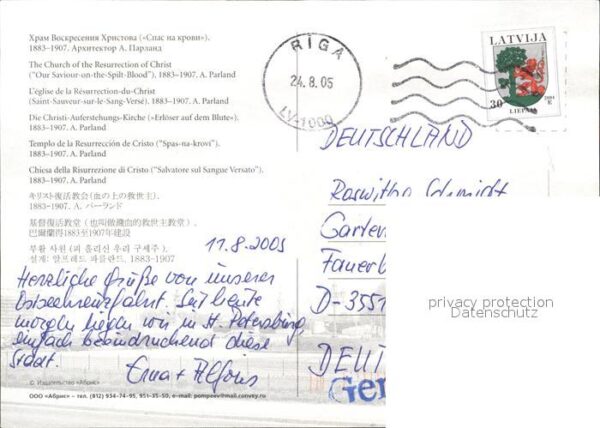 Храм Воскресения Христова («Спас на крови»).
1883–1907. Архитектор А. Парланд
The Church of the Resurrection of Christ
("Our Saviour-on-the-Spilt-Blood"), 1883–1907. A. Parland
L'église de la Résurrection-du-Christ
(Saint-Sauveur-sur-le-Sang-Versé). 1883–1907. A. Parland
Die Christi-Auferstehungs-Kirche («Erlöser auf dem Blute»).
1883–1907. A. Parland
Templo de la Resurrección de Cristo ("Spas-na-krovi").
1883–1907. A. Parland
Chiesa della Risurrezione di Cristo ("Salvatore sul Sangue Versato").
1883–1907. A. Parland
キリスト復活教会(血の上の救世主)。
1883-1907. A. パーランド
基督復活教堂（也叫做撒血的救世主教堂）.
巴爾蘭得1883至1907年建設
부활 사원 (피 흘리신 우리 구세주).
설계: 알프레드 파를란드. 1883-1907
11.8.2005
Herzliche Grüße von unserer
Ostseekreuzfahrt. Seit heute
morgen liegen wir in St. Petersburg,
einfach beeindruckend diese
Stadt.
Erna + Alfons
© Издательство «Абрис»
ООО «Абрис» – тел. (812) 934-74-95, 951-35-50, e-mail: pompeev@mail.convey.ru
RIGA
24.8.05
LV-1000
LATVIJA
30
2004
E
LIEPĀJA
DEUTSCHLAND
Roswitha Schmidt
Garten
Fauerb
D-3551
DEUT
Ger
privacy protection
Datenschutz